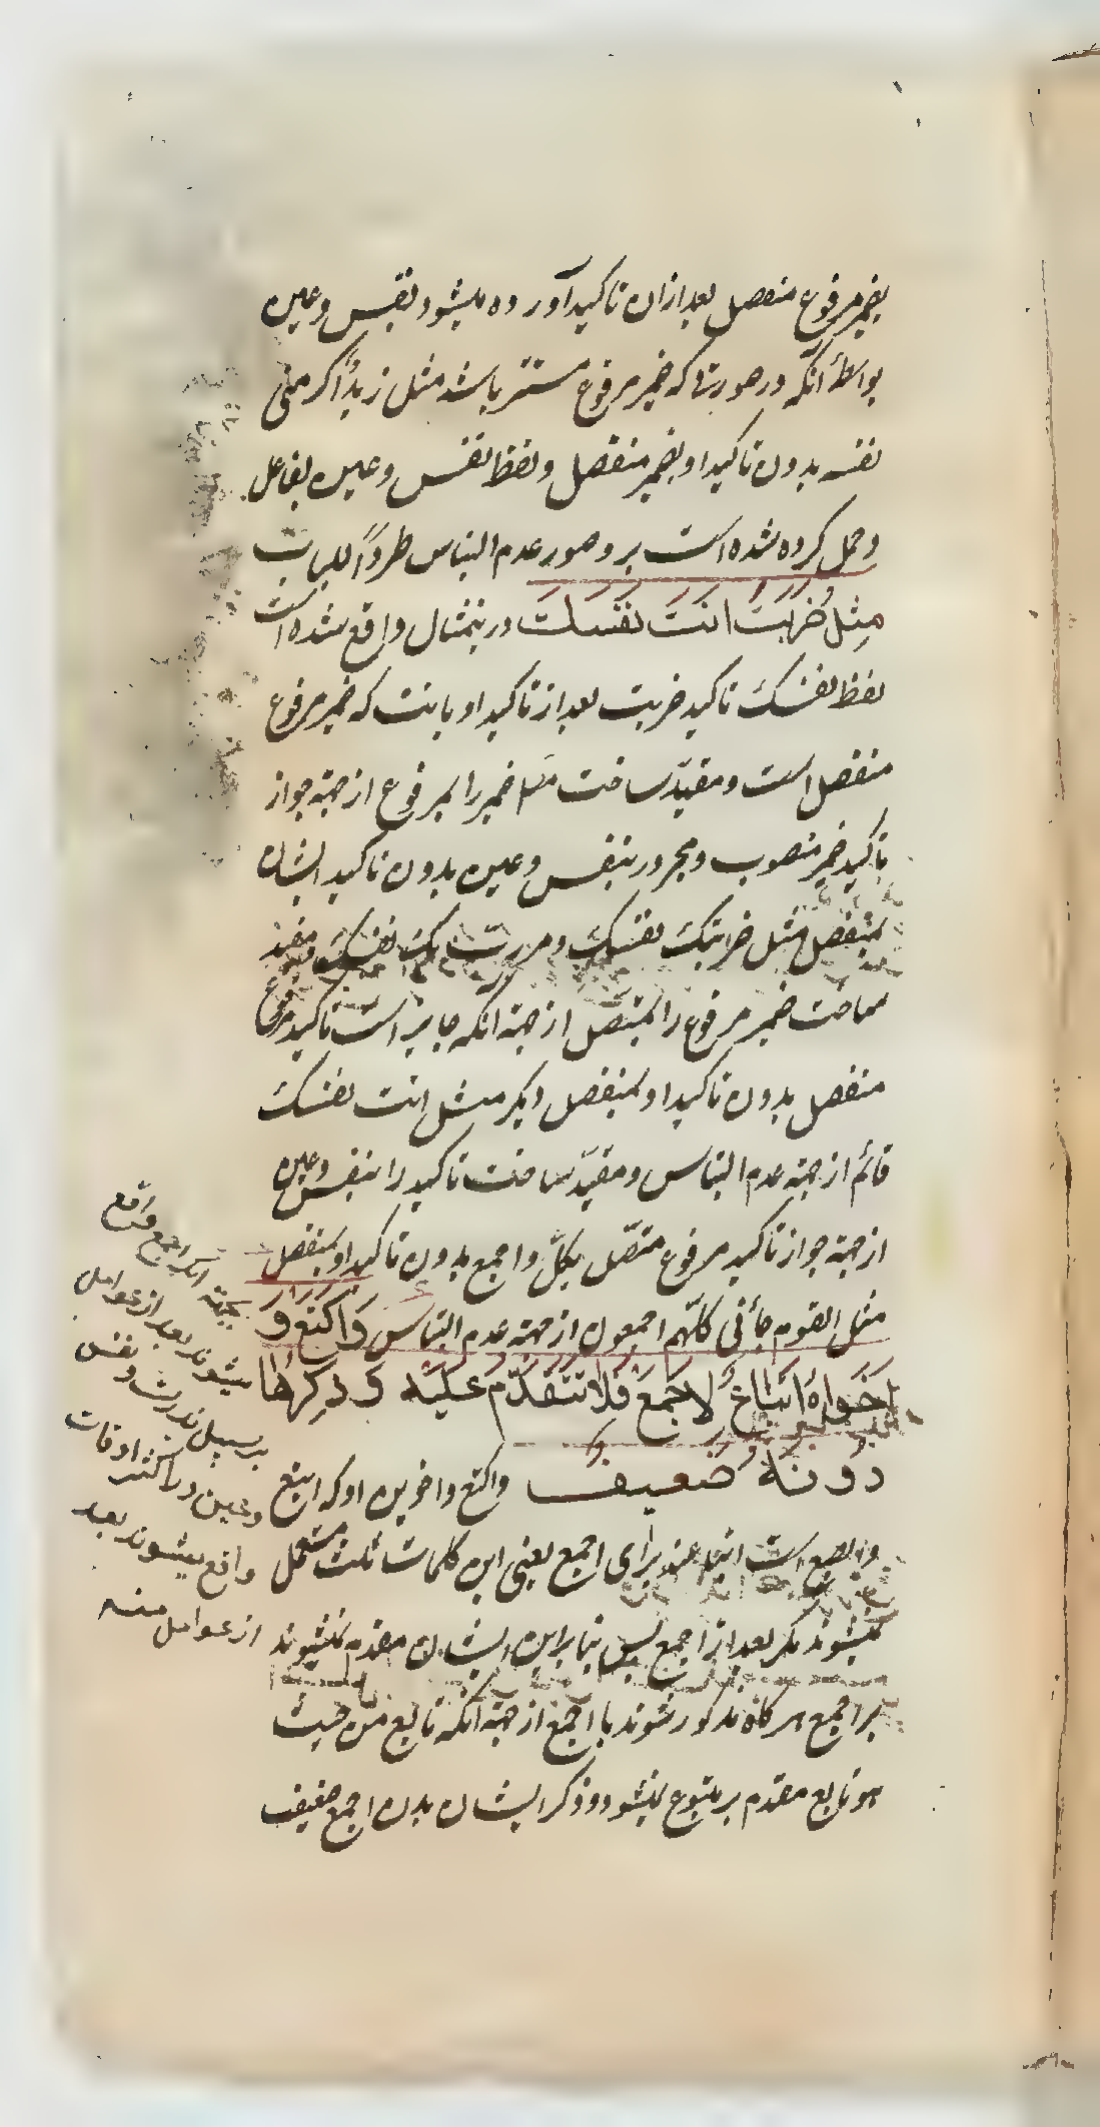 بضمیر مرفوع منفصل بعد ازان تاکید آورده میشود بنفس وعین
بواسطهٔ آنکه درصورتیکه ضمیر مرفوع مستتر باشد مثل زید اکرمنی
نفسه بدون تاکید او بضمیر منفصل ولفظ نفس وعین بفاعل
وحمل کرده شده است بر و صور عدم التباس طرداً للباب
مِثلُ ضَرَبتَ اَنتَ نَفسَکَ درینمثال واقع شده است
لفظ نفسک تاکید ضربت بعد از تاکید او بانت که ضمیر مرفوع
منفصل است ومقیّد ساخت ضمیر را بمرفوع از جهة جواز
تاکید ضمیر منصوب ومجرور بنفس وعین بدون تاکید ایشان
بمنفصل مثل ضربتک نفسک ومررت بک نفسک ومقید
ساخت ضمیر مرفوع را بمتّصل از جهة آنکه جایز است تاکید مرفوع
منفصل بدون تاکید او بمنفصل دیگر مثل انت نفسک
قائم از جهة عدم التباس ومقیّد ساخت تاکید را بنفس وعین
از جهة جواز تاکید مرفوع متّصل بکلّ واجمع بدون تاکید او بمنفصل
مثل القوم جاءنی کلّهم اجمعون از جهة عدم التباس وَاَکتَعُ وَ
اَخَواهُ اَتباعٌ لِاَجمَعَ فَلا تَتَقَدَّمُ عَلَیهِ وَ ذِکرُها
دُونَهُ ضَعِیفٌ واکتع واخوین او که ابتع
وابصع است اتباعند برای اجمع یعنی این کلمات ثلث مستعمل
نمیشوند مکر بعد از اجمع پس بنابراین ایشان مقدم نمیشوند
براجمع هرکاه مذکور شوند با اجمع از جهة آنکه تابع من حیث
هو تابع مقدم بر متبوع نمیشود وذکر ایشان بدون اجمع ضعیف
بجهة آنکه اجمع واقع
میشوند بعد از عوامل
بر سبیل ندرت ونفس
وعین در اکثر اوقات
واقع میشوند بعد
از عوامل منه